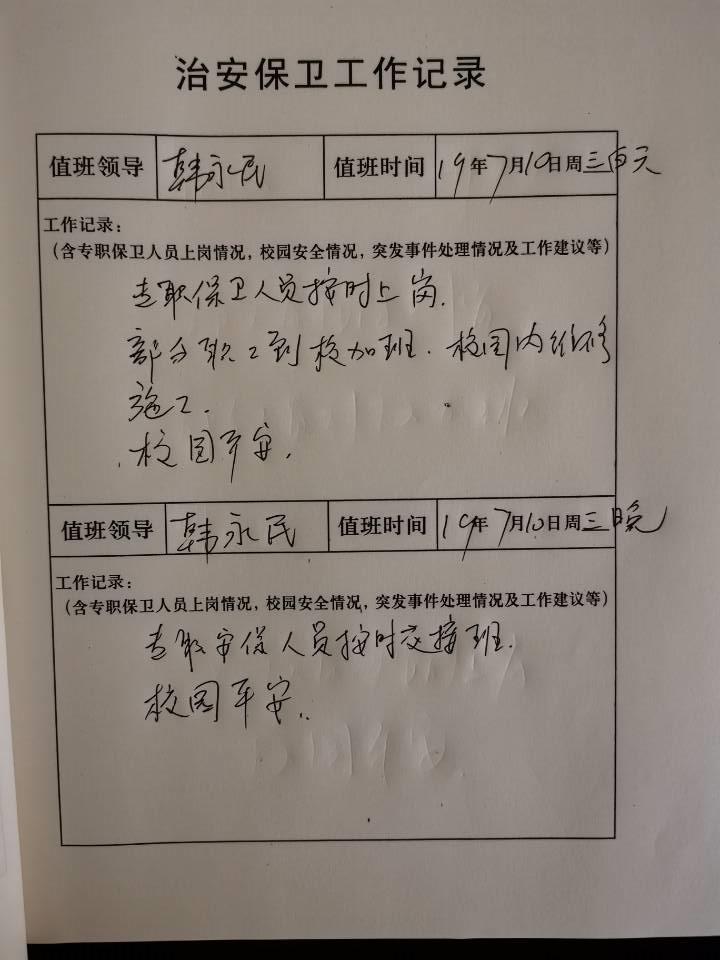 治安保卫工作记录
值班领导 韩永民 值班时间 19年7月10日周三白天
工作记录：
（含专职保卫人员上岗情况，校园安全情况，突发事件处理情况及工作建议等）
专职保卫人员按时上岗.
部分职工到校加班.校园内维修
施工.
校园平安.
值班领导 韩永民 值班时间 19年7月10日周三晚
工作记录：
（含专职保卫人员上岗情况，校园安全情况，突发事件处理情况及工作建议等）
专职安保人员按时交接班.
校园平安.